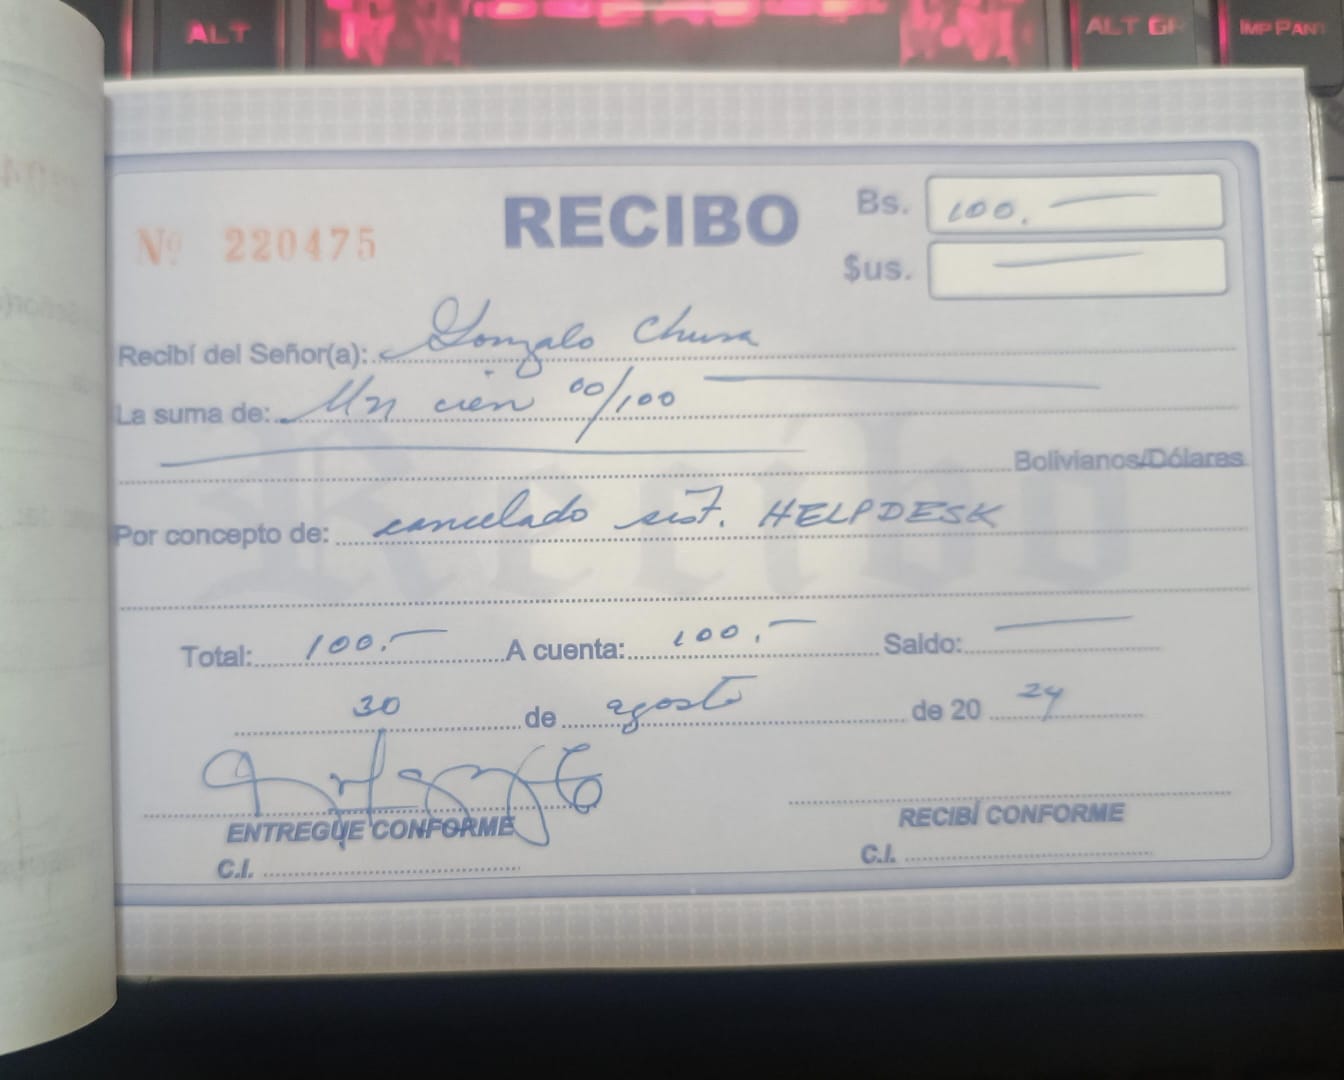 ALT
ALT GR
IMP PANT
RECIBO
Nº 220475
Bs. 100.—
$us. —
Recibí del Señor(a): Gonzalo Chura
La suma de: Un cien 00/100
Bolivianos/Dólares
Por concepto de: cancelado sist. HELPDESK
Total: 100.— A cuenta: 100.— Saldo: —
30 de agosto de 20 24
ENTREGUE CONFORME
RECIBÍ CONFORME
C.I.
C.I.